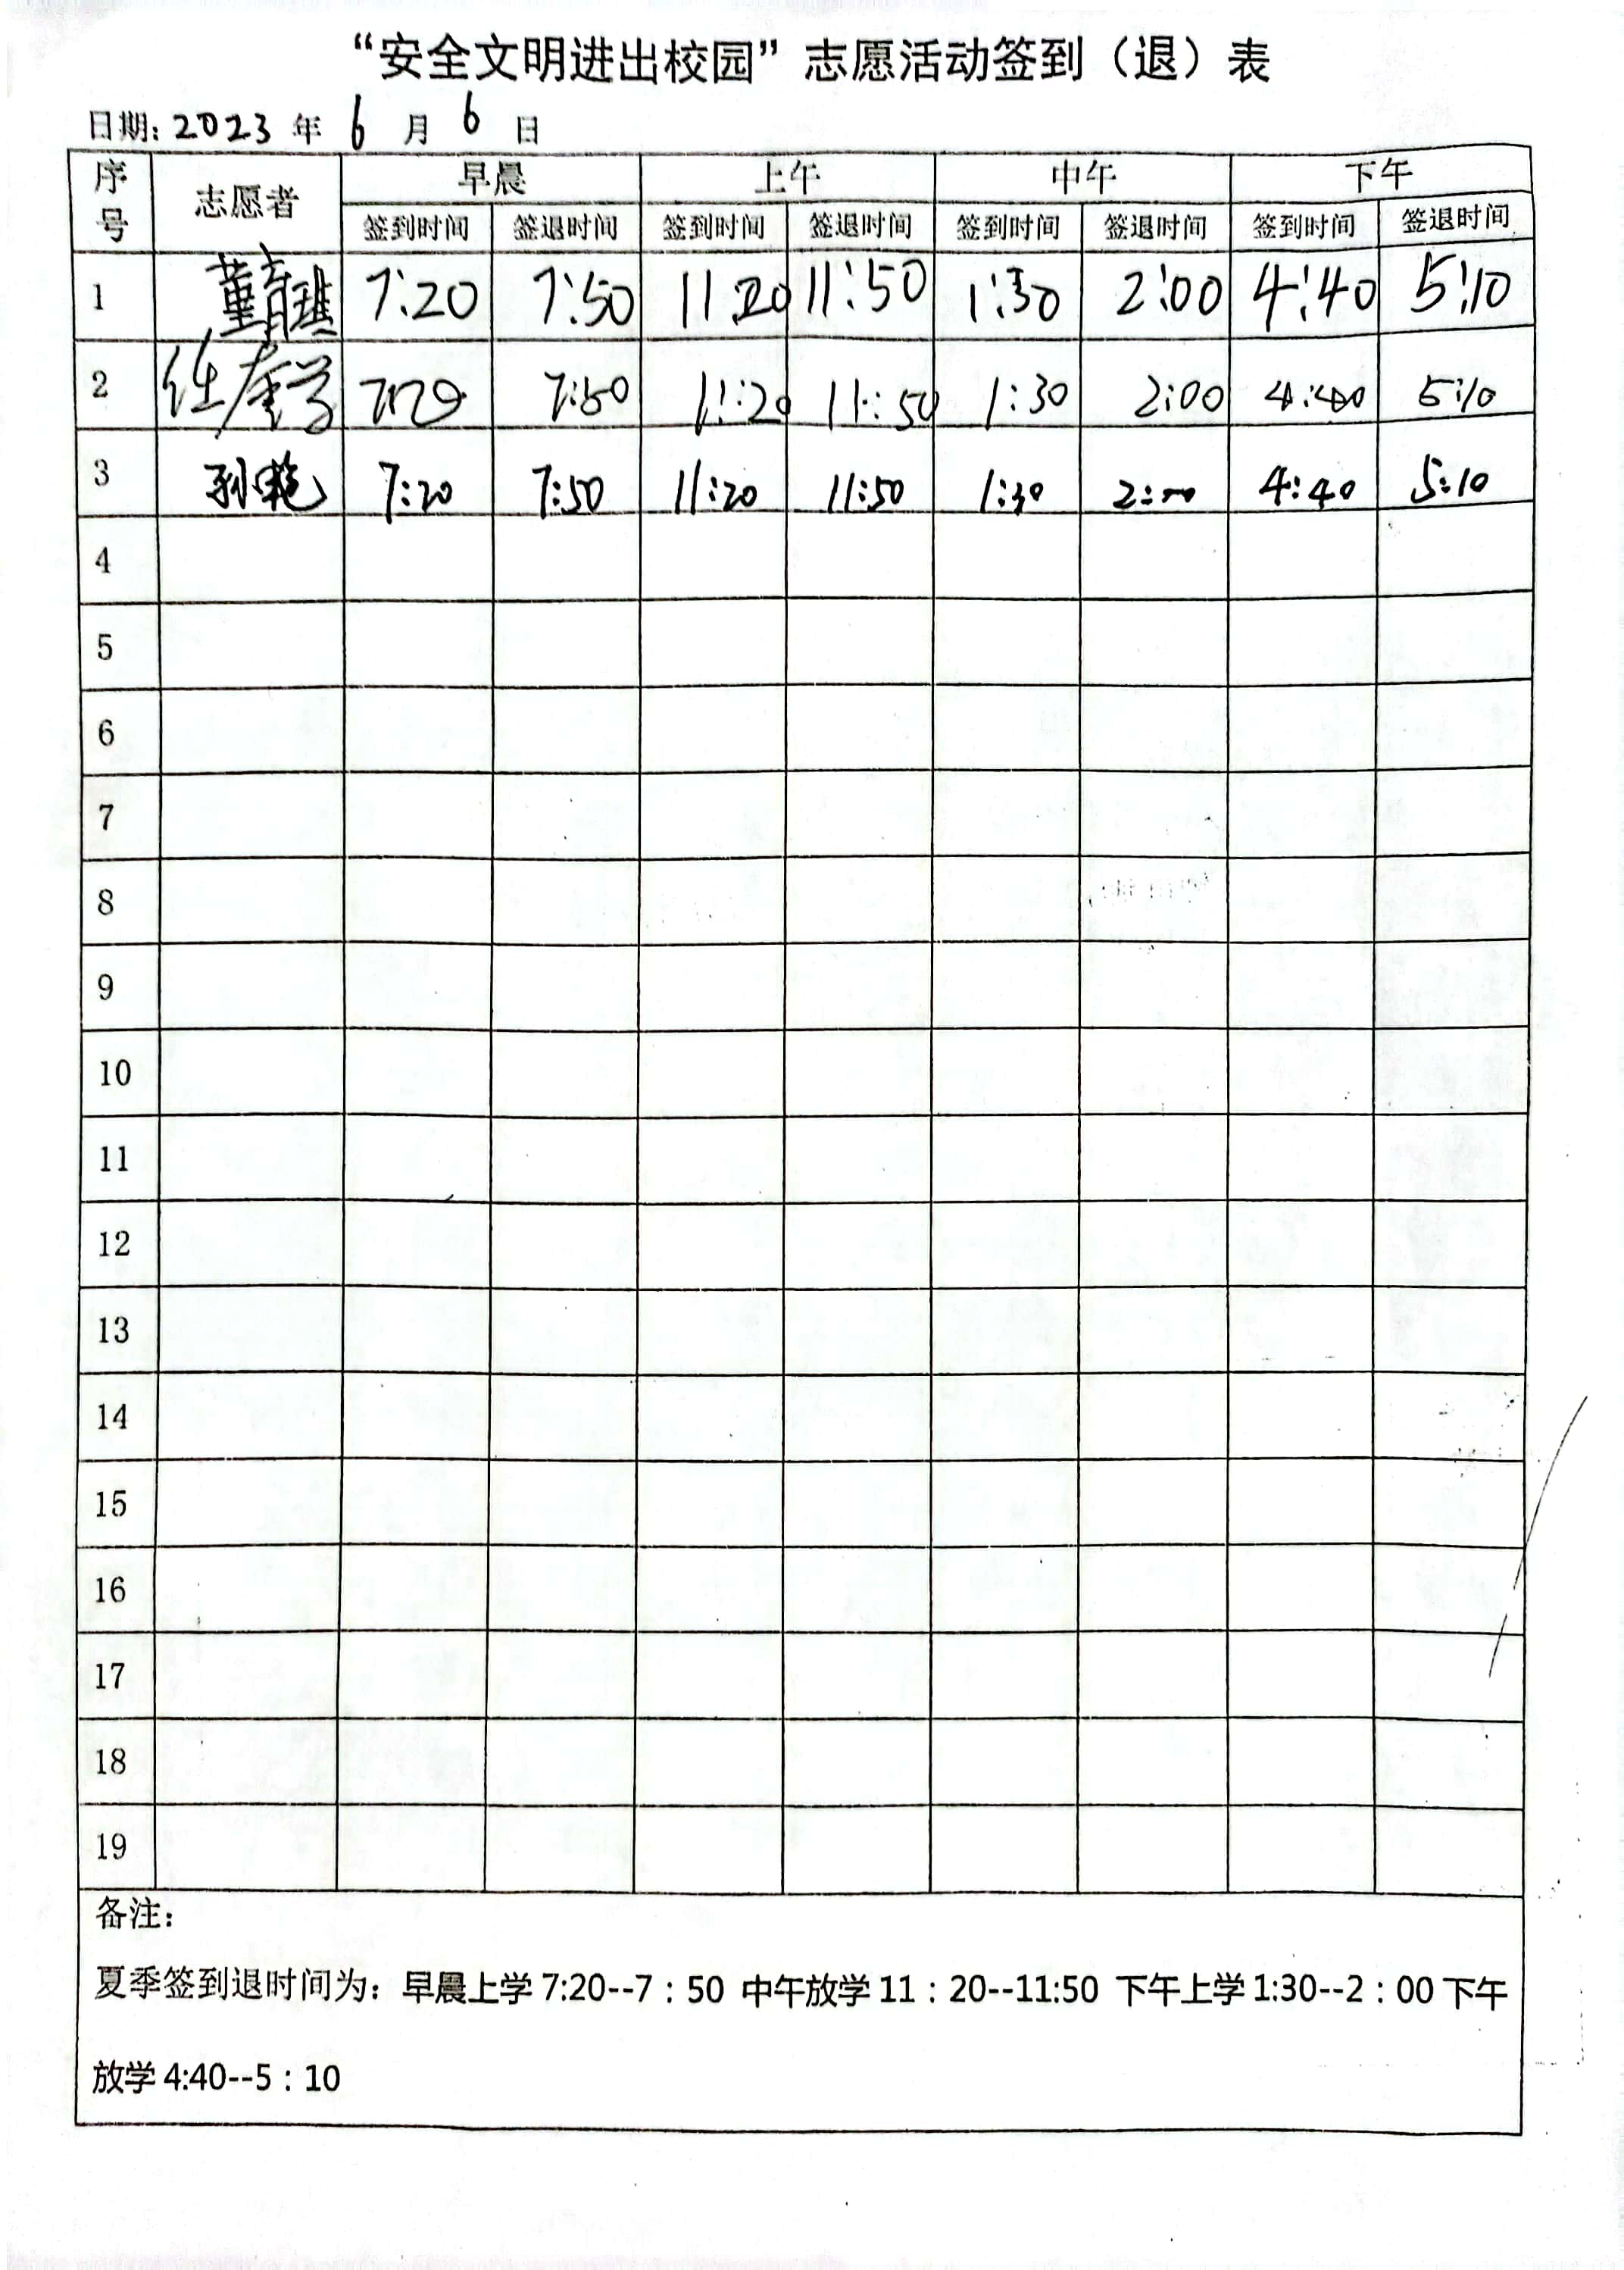 “安全文明进出校园”志愿活动签到（退）表
日期: 2023 年 6 月 6 日
序号 志愿者 早晨 上午 中午 下午
签到时间 签退时间 签到时间 签退时间 签到时间 签退时间 签到时间 签退时间
1 董育 7:20 7:50 11:20 11:50 1:30 2:00 4:40 5:10
2 任奎学 7:20 7:50 11:20 11:50 1:30 2:00 4:40 5:10
3 孙艳 7:20 7:50 11:20 11:50 1:30 2:00 4:40 5:10
4
5
6
7
8
9
10
11
12
13
14
15
16
17
18
19
备注:
夏季签到退时间为：早晨上学 7:20--7：50 中午放学 11：20--11:50 下午上学 1:30--2：00 下午
放学 4:40--5：10